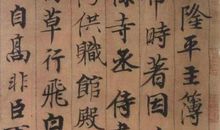 隆平主簿
帝時著因
寺丞侍書
供職館殿
草行飛白
自高非臣